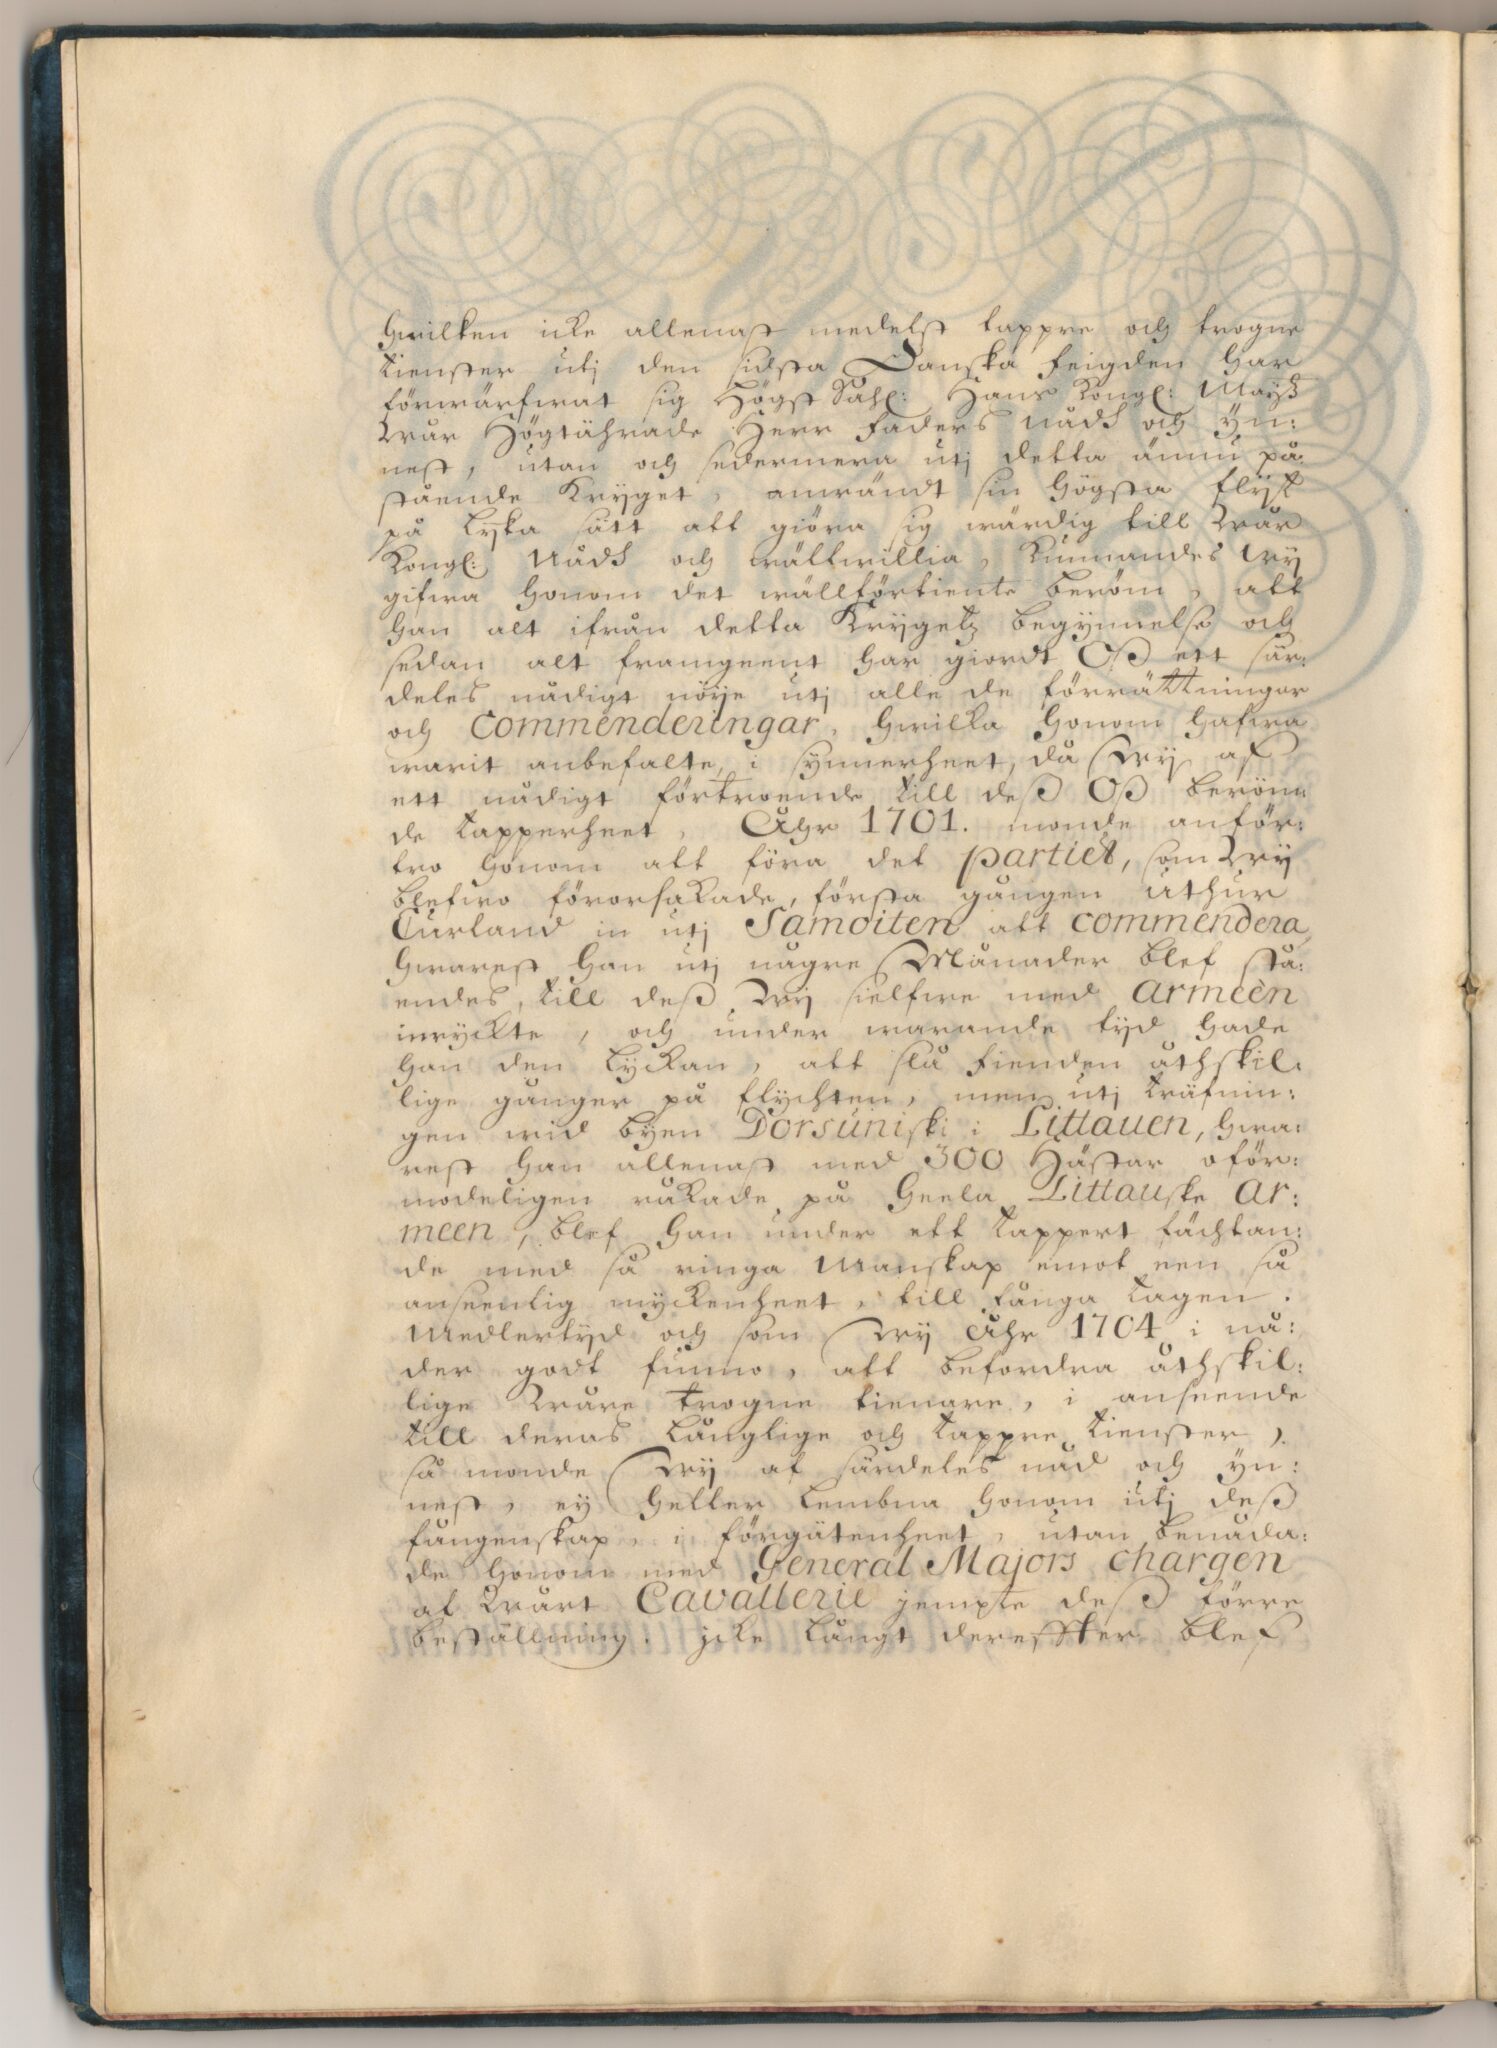 Hwilken icke allenast medelst tappre och trogne
tienster utj den sidsta Danska feigden har
förwärfwat sig Högst Sahl: Hans Kongl: Mayᵗᶻ
Wår Högtährade Herr Faders nåd och yn:
nest, utan och sedermera utj detta ännu på
stående Kryget, anwändt sin högsta flijt
på lyka sätt att giöra sig wärdig till Wår
Kongl: Nåd och wältwillia, kunnandes Wij
gifwa honom det wällförtiente beröm, att
han alt ifrån detta Krygetz begynnelse och
sedan alt framgeent har giordt Oß ett sär:
deles nådigt nöije utj alle de förrättningar
och Commenderingar, hwilka honom hafwa
warit anbefalte, i synnerheet, då Wij af
ett nådigt förtroende till deß Oß beröm
de tapperheet, Åhr 1701. monde anför:
tro honom att föra det partiet, som Wij
blefwo förorsakade, första gången uthur
Curland in utj Samoiten att commendera,
hwarest han utj någre Månader blef stå:
endes, till deß Wij sielfwe med Armeen
inryckte, och under warande tyd hade
han den lyckan, att slå fienden åthskil:
lige gånger på flychten, men utj träfnin:
gen wid byen Dorsuniski i Littauen, hwa:
rest han allenast med 300 Hästar oför:
modeligen råkade på heela Littauske Ar:
meen, blef han under ett tappert fächtan:
de med så ringa Manskap emot een så
anseenlig myckenheet, till fånga tagen.
Medlertyd och som Wij Åhr 1704 i nå:
der godt funno, att befordra åthskil:
lige Wåre trogne tienare, i anseende
till deras långlige och tappre tienster,
så monde Wij af särdeles nåd och yn:
nest, ey heller lembna honom utj deß
fångenskap, i förgätenheet, utan benåda:
de honom med General Majors chargen
af Wårt Cavallerie jempte deß förre
beställning. icke långt dereffter blef